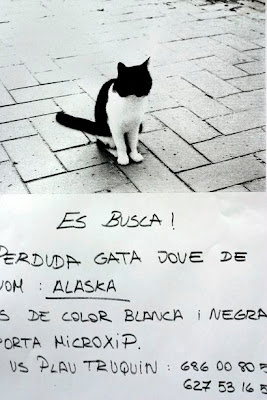 ES BUSCA!
PERDUDA GATA JOVE DE
NOM: ALASKA
ES DE COLOR BLANCA i NEGRA
PORTA MICROXiP.
US PLAU TRUQUIN: 686 00 80 5
627 53 16 5